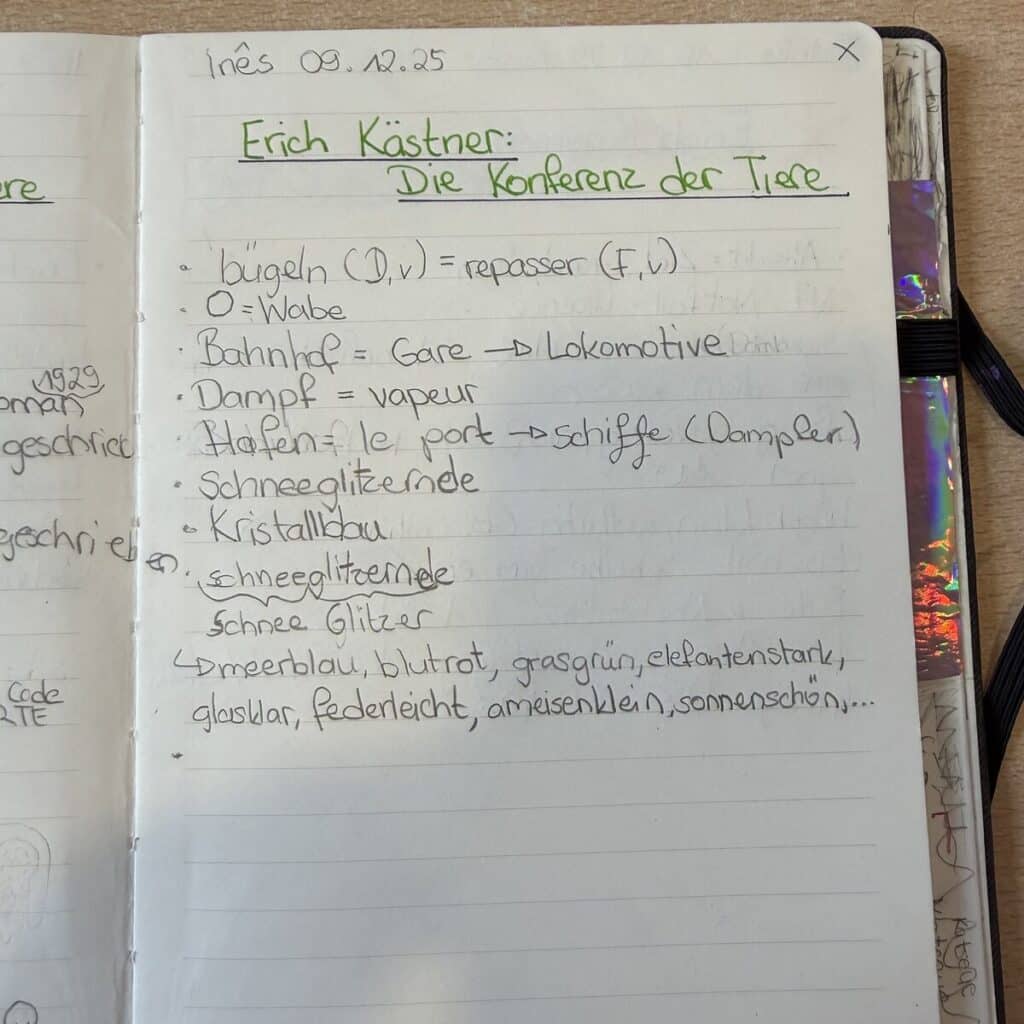 ere
1929
oman
geschrieb
geschrieben
Code
TE
Inês 09.12.25 X
Erich Kästner:
Die Konferenz der Tiere
• bügeln (D,v) = repasser (F,v)
• O = Wabe
• Bahnhof = Gare → Lokomotive
• Dampf = vapeur
• Hafen = le port → Schiffe (Dampfer)
• Schneeglitzernde
• Kristallbau
• schneeglitzernde
Schnee Glitzer
↳ meerblau, blutrot, grasgrün, elefantenstark,
glasklar, federleicht, ameisenklein, sonnenschön,...
•